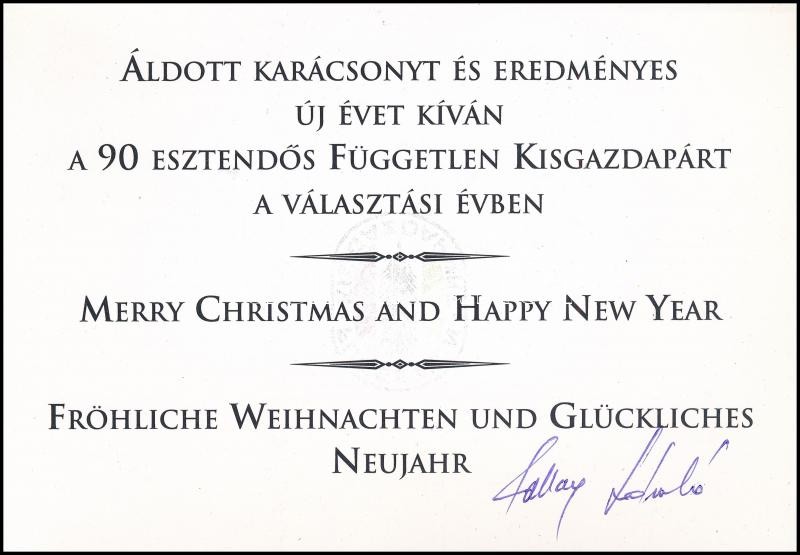 Áldott karácsonyt és eredményes
új évet kíván
a 90 esztendős Független Kisgazdapárt
a választási évben
Merry Christmas and Happy New Year
Fröhliche Weihnachten und Glückliches
Neujahr